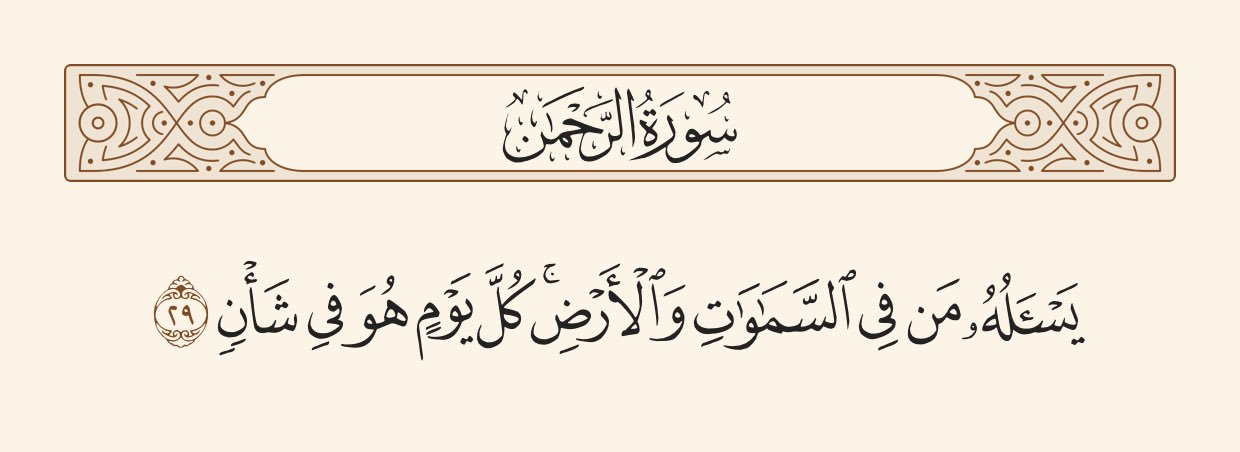 سُورَةُ الرَّحْمَٰن
يَسْـَٔلُهُۥ مَن فِى ٱلسَّمَـٰوَٰتِ وَٱلْأَرْضِ ۚ كُلَّ يَوْمٍ هُوَ فِى شَأْنٍ ٢٩